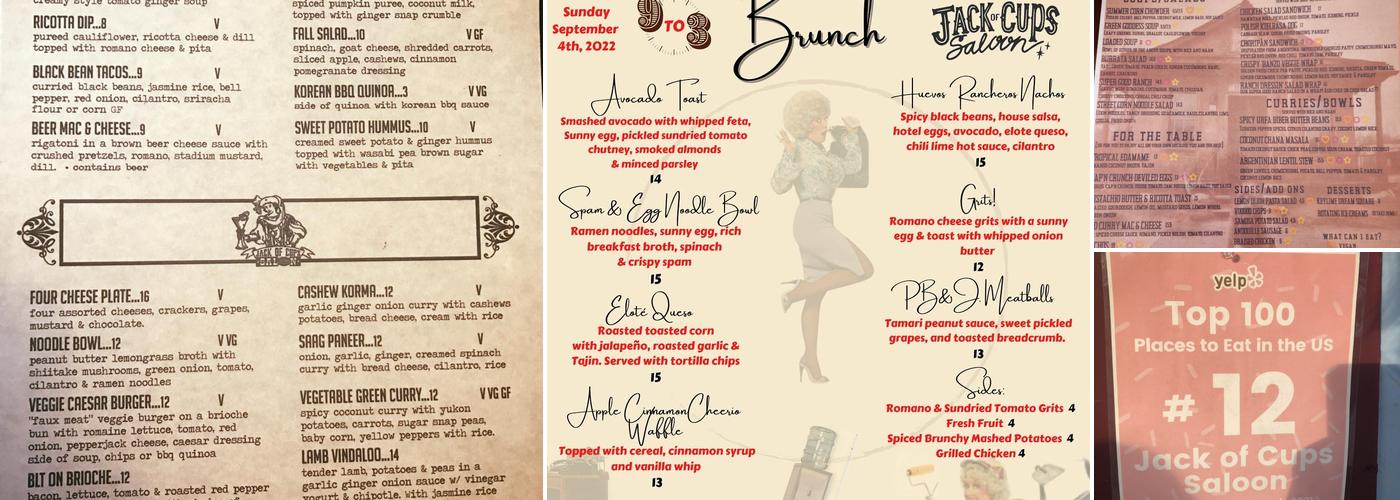 creamy style tomato ginger soup
RICOTTA DIP...8 V
pureed cauliflower, ricotta cheese & dill
topped with romano cheese & pita
BLACK BEAN TACOS...9 V
curried black beans, jasmine rice, bell
pepper, red onion, cilantro, sriracha
flour or corn GF
BEER MAC & CHEESE...9 V
rigatoni in a brown beer cheese sauce with
crushed pretzels, romano, stadium mustard,
dill. • contains beer
spiced pumpkin puree, coconut milk,
topped with ginger snap crumble
FALL SALAD...10 V GF
spinach, goat cheese, shredded carrots,
sliced apple, cashews, cinnamon
pomegranate dressing
KOREAN BBQ QUINOA...3 V VG
side of quinoa with korean bbq sauce
SWEET POTATO HUMMUS...10 V
creamed sweet potato & ginger hummus
topped with wasabi pea brown sugar
with vegetables & pita
JACK OF CUPS
SALOON
FOUR CHEESE PLATE...16 V
four assorted cheeses, crackers, grapes,
mustard & chocolate.
NOODLE BOWL...12 V VG
peanut butter lemongrass broth with
shiitake mushrooms, green onion, tomato,
cilantro & ramen noodles
VEGGIE CAESAR BURGER...12 V
"faux meat" veggie burger on a brioche
bun with romaine lettuce, tomato, red
onion, pepperjack cheese, caesar dressing
side of soup, chips or bbq quinoa
BLT ON BRIOCHE...12
bacon, lettuce, tomato & roasted red pepper
CASHEW KORMA...12 V
garlic ginger onion curry with cashews
potatoes, bread cheese, cream with rice
SAAG PANEER...12 V
onion, garlic, ginger, creamed spinach
curry with bread cheese, cilantro, rice
VEGETABLE GREEN CURRY...12 V VG GF
spicy coconut curry with yukon
potatoes, carrots, sugar snap peas,
baby corn, yellow peppers with rice.
LAMB VINDALOO...14
tender lamb, potatoes & peas in a
garlic ginger onion sauce w/ vinegar
yogurt & chipotle. with jasmine rice
Sunday
September
4th, 2022
9 TO 3
Brunch
JACK OF CUPS
Saloon
Avocado Toast
Smashed avocado with whipped feta,
Sunny egg, pickled sundried tomato
chutney, smoked almonds
& minced parsley
14
Spam & Egg Noodle Bowl
Ramen noodles, sunny egg, rich
breakfast broth, spinach
& crispy spam
15
Eloté Queso
Roasted toasted corn
with jalapeño, roasted garlic &
Tajin. Served with tortilla chips
15
Apple Cinnamon Cheerio
Waffle
Topped with cereal, cinnamon syrup
and vanilla whip
13
Huevos Rancheros Nachos
Spicy black beans, house salsa,
hotel eggs, avocado, elote queso,
chili lime hot sauce, cilantro
15
Grits!
Romano cheese grits with a sunny
egg & toast with whipped onion
butter
12
PB&J Meatballs
Tamari peanut sauce, sweet pickled
grapes, and toasted breadcrumb.
13
Sides:
Romano & Sundried Tomato Grits 4
Fresh Fruit 4
Spiced Brunchy Mashed Potatoes 4
Grilled Chicken 4
SUMMER CORN CHOWDER
GREEN GODDESS SOUP
LOADED SOUP
BURRATA SALAD
SUPER GOOD RANCH
STREET CORN NOODLE SALAD
FOR THE TABLE
TROPICAL EDAMAME
CAP'N CRUNCH DEVILED EGGS
PISTACHIO BUTTER & RICOTTA TOAST
CURRY MAC & CHEESE
CHICKEN SALAD SANDWICH
CHORIPÁN SANDWICH
CRISPY BANZO VEGGIE WRAP
RANCH DRESSIN' SALAD WRAP
CURRIES/BOWLS
SPICY UREA BIBER BUTTER BEANS
COCONUT CHANA MASALA
ARGENTINIAN LENTIL STEW
SIDES/ADD ONS
LEMON DIJON PASTA SALAD
VOODOO CHIPS
SAMOSA POTATO SALAD
ANDOUILLE SAUSAGE
BRAISED CHICKEN
DESSERTS
KEYLIME DREAM SQUARE
ROTATING ICE CREAMS
WHAT CAN I EAT?
VEGAN
yelp
Top 100
Places to Eat in the US
# 12
Jack of Cups
Saloon